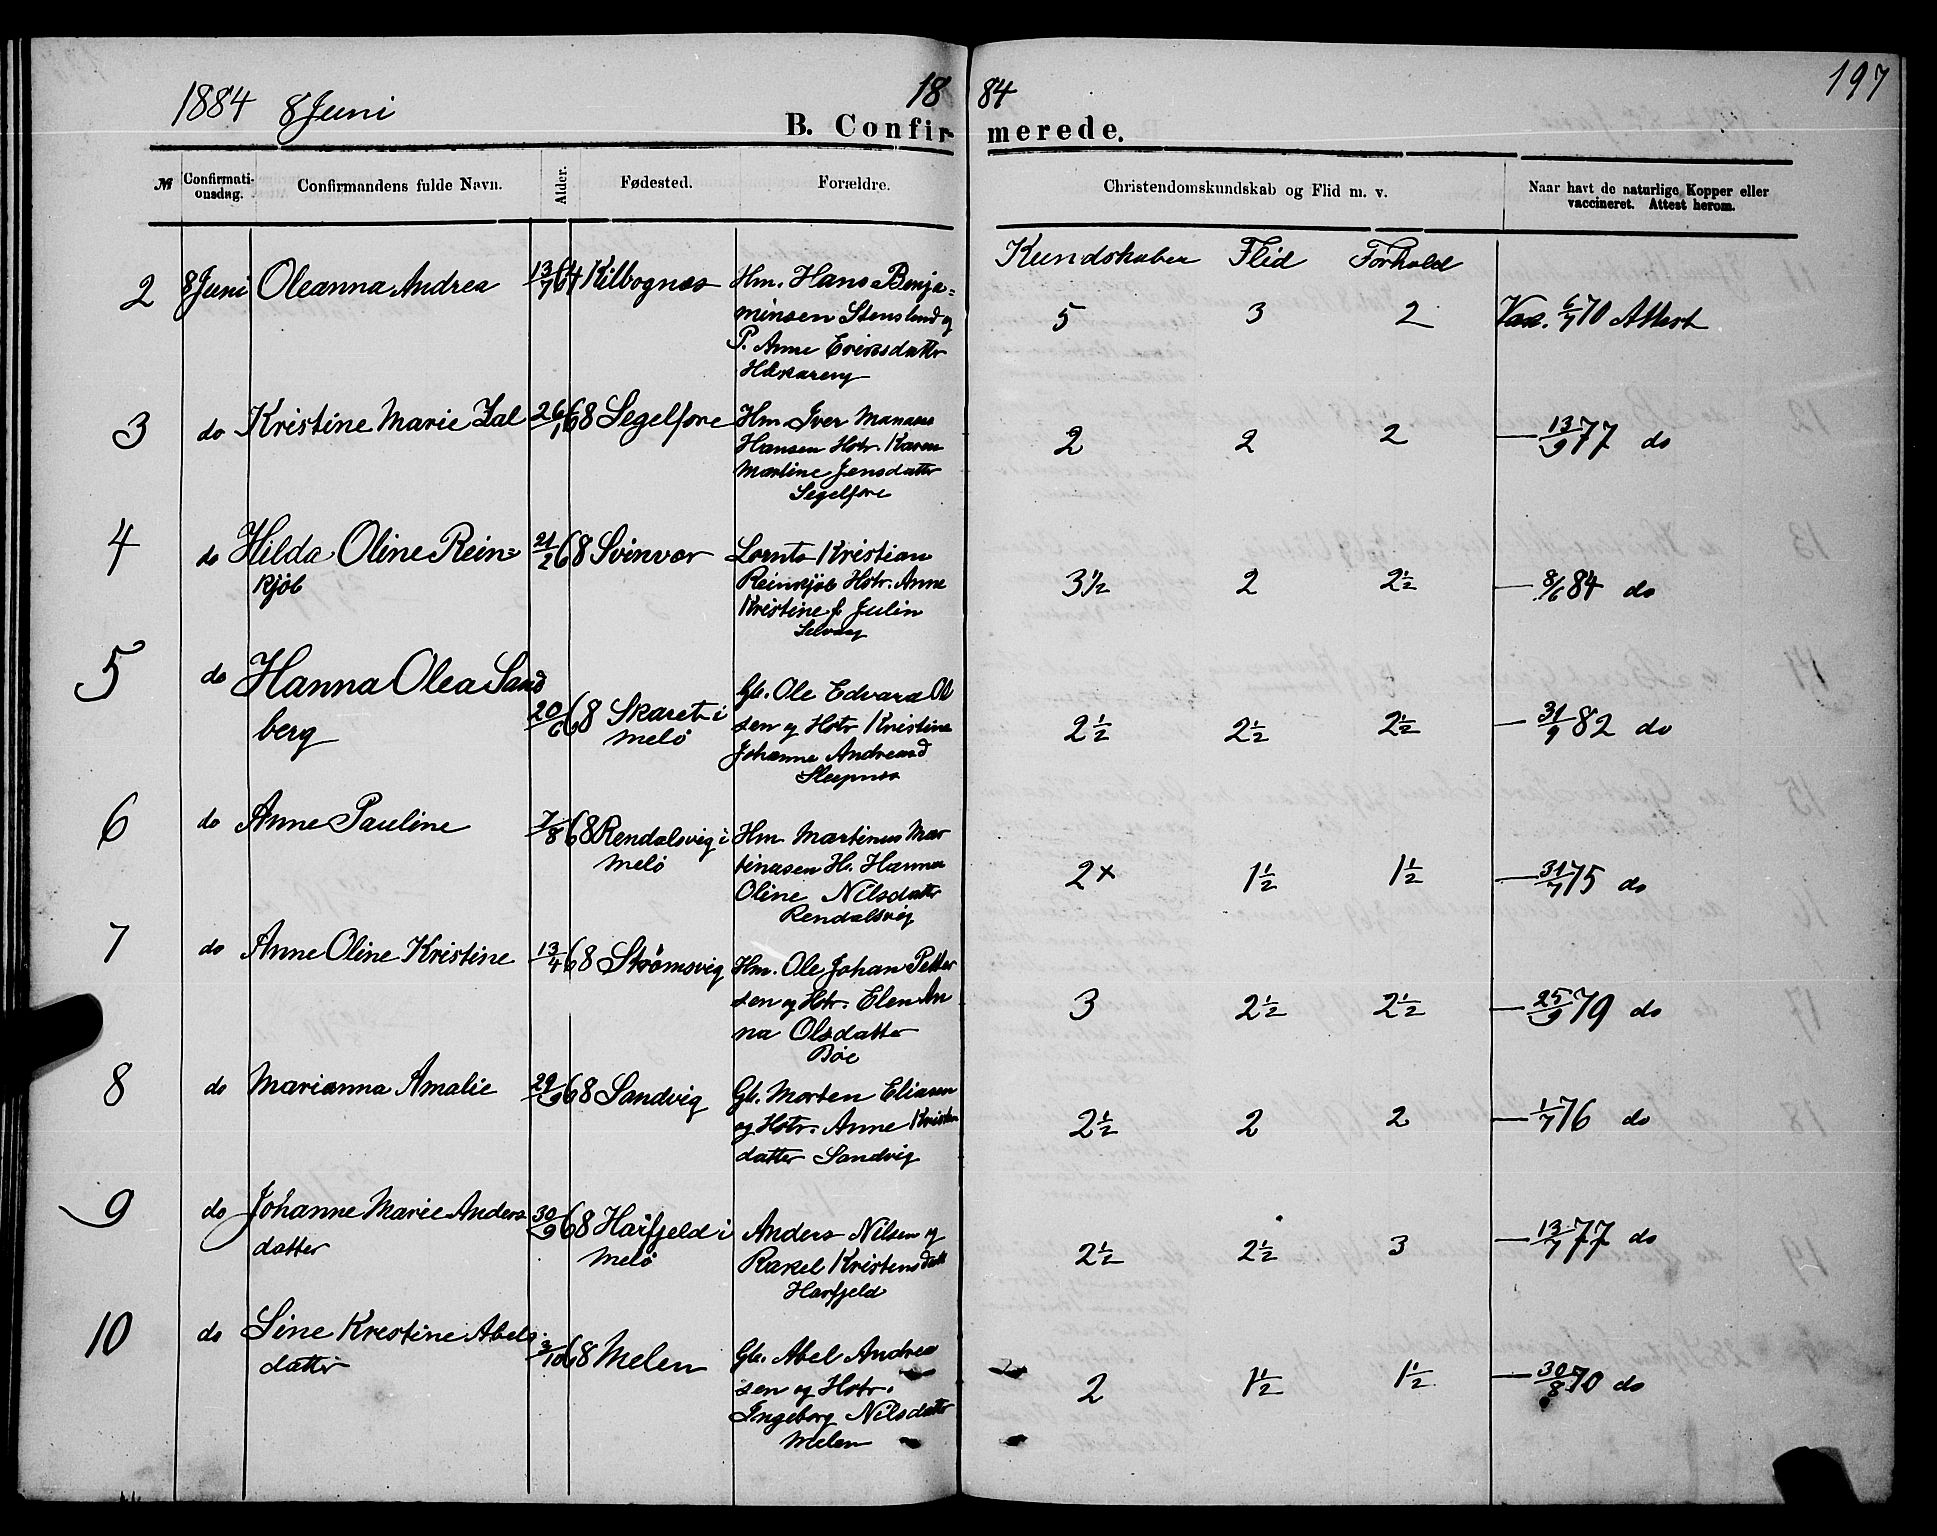 1884 8 Juni 18 84 197
B. Confirmerede.
№ Confirmationsdag. Confirmandens fulde Navn. Alder. Fødested. Forældre. Christendomskundskab og Flid m. v. Naar havt de naturlige Kopper eller vaccineret. Attest herom.
Kundskaber Flid Forhold
2 8 Juni Oleanna Andrea 13/7 64 Kilbognes Hm. Hans Benja=
minsen Stensland og
P. Anne Eriksdatter
5 3 2 Vac. 6/7 70 Attest
3 do Kristine Marie Zal 26/1 68 Segelfore Hm. Iver Manase
Hansen Hstr. Karen
Martine Jensdatter
Segelfore
2 2 2 — 13/9 77 do
4 do Hilda Oline Rein=
kjøb
21/2 68 Svinvær Lornts Kristian
Reinkjøb Hstr. Anne
Kristine f. Julin
Selvaag
3 1/2 2 2 1/2 — 8/6 84 do
5 do Hanna Olea Sand
berg
20/6 68 Skaret i
Melö
Gb. Ole Edvard Ol
sen og Hstr Kristine
Johanne Andreasd
Sleepnes
2 1/2 2 1/2 2 1/2 — 31/9 82 do
6 do Anne Pauline 7/8 68 Rendalsvig i
Melö
Hm. Martinus Mar
tinusen H. Hanna
Oline Nilsdatter
Rendalsvig
2x 1 1/2 1 1/2 — 31/7 75 do
7 do Anne Oline Kristine 13/4 68 Strömsvig Hm. Ole Johan Petter
sen og Hstr. Elen An
na Olsdatter
Böe
3 2 1/2 2 1/2 — 25/9 79 do
8 do Marianna Amalie 29/9 68 Sandvig Gb. Morten Eliasen
og Hstr. Anne Kristen
datter Sandvig
2 1/2 2 2 — 1/7 76 do
9 do Johanne Marie Anders
datter
30/9 68 Harfjeld i
Melö
Anders Nilsen og
Rakel Kristensdatt
Harfjeld
2 1/2 2 1/2 3 — 13/7 77 do
10 do Line Krestine Abels
datter
3/10 68 Melen Gb. Abel Andrea
sen og Hstr.
Ingeborg Nilsdatter
Melen
2 1 1/2 1 1/2 — 30/8 70 do